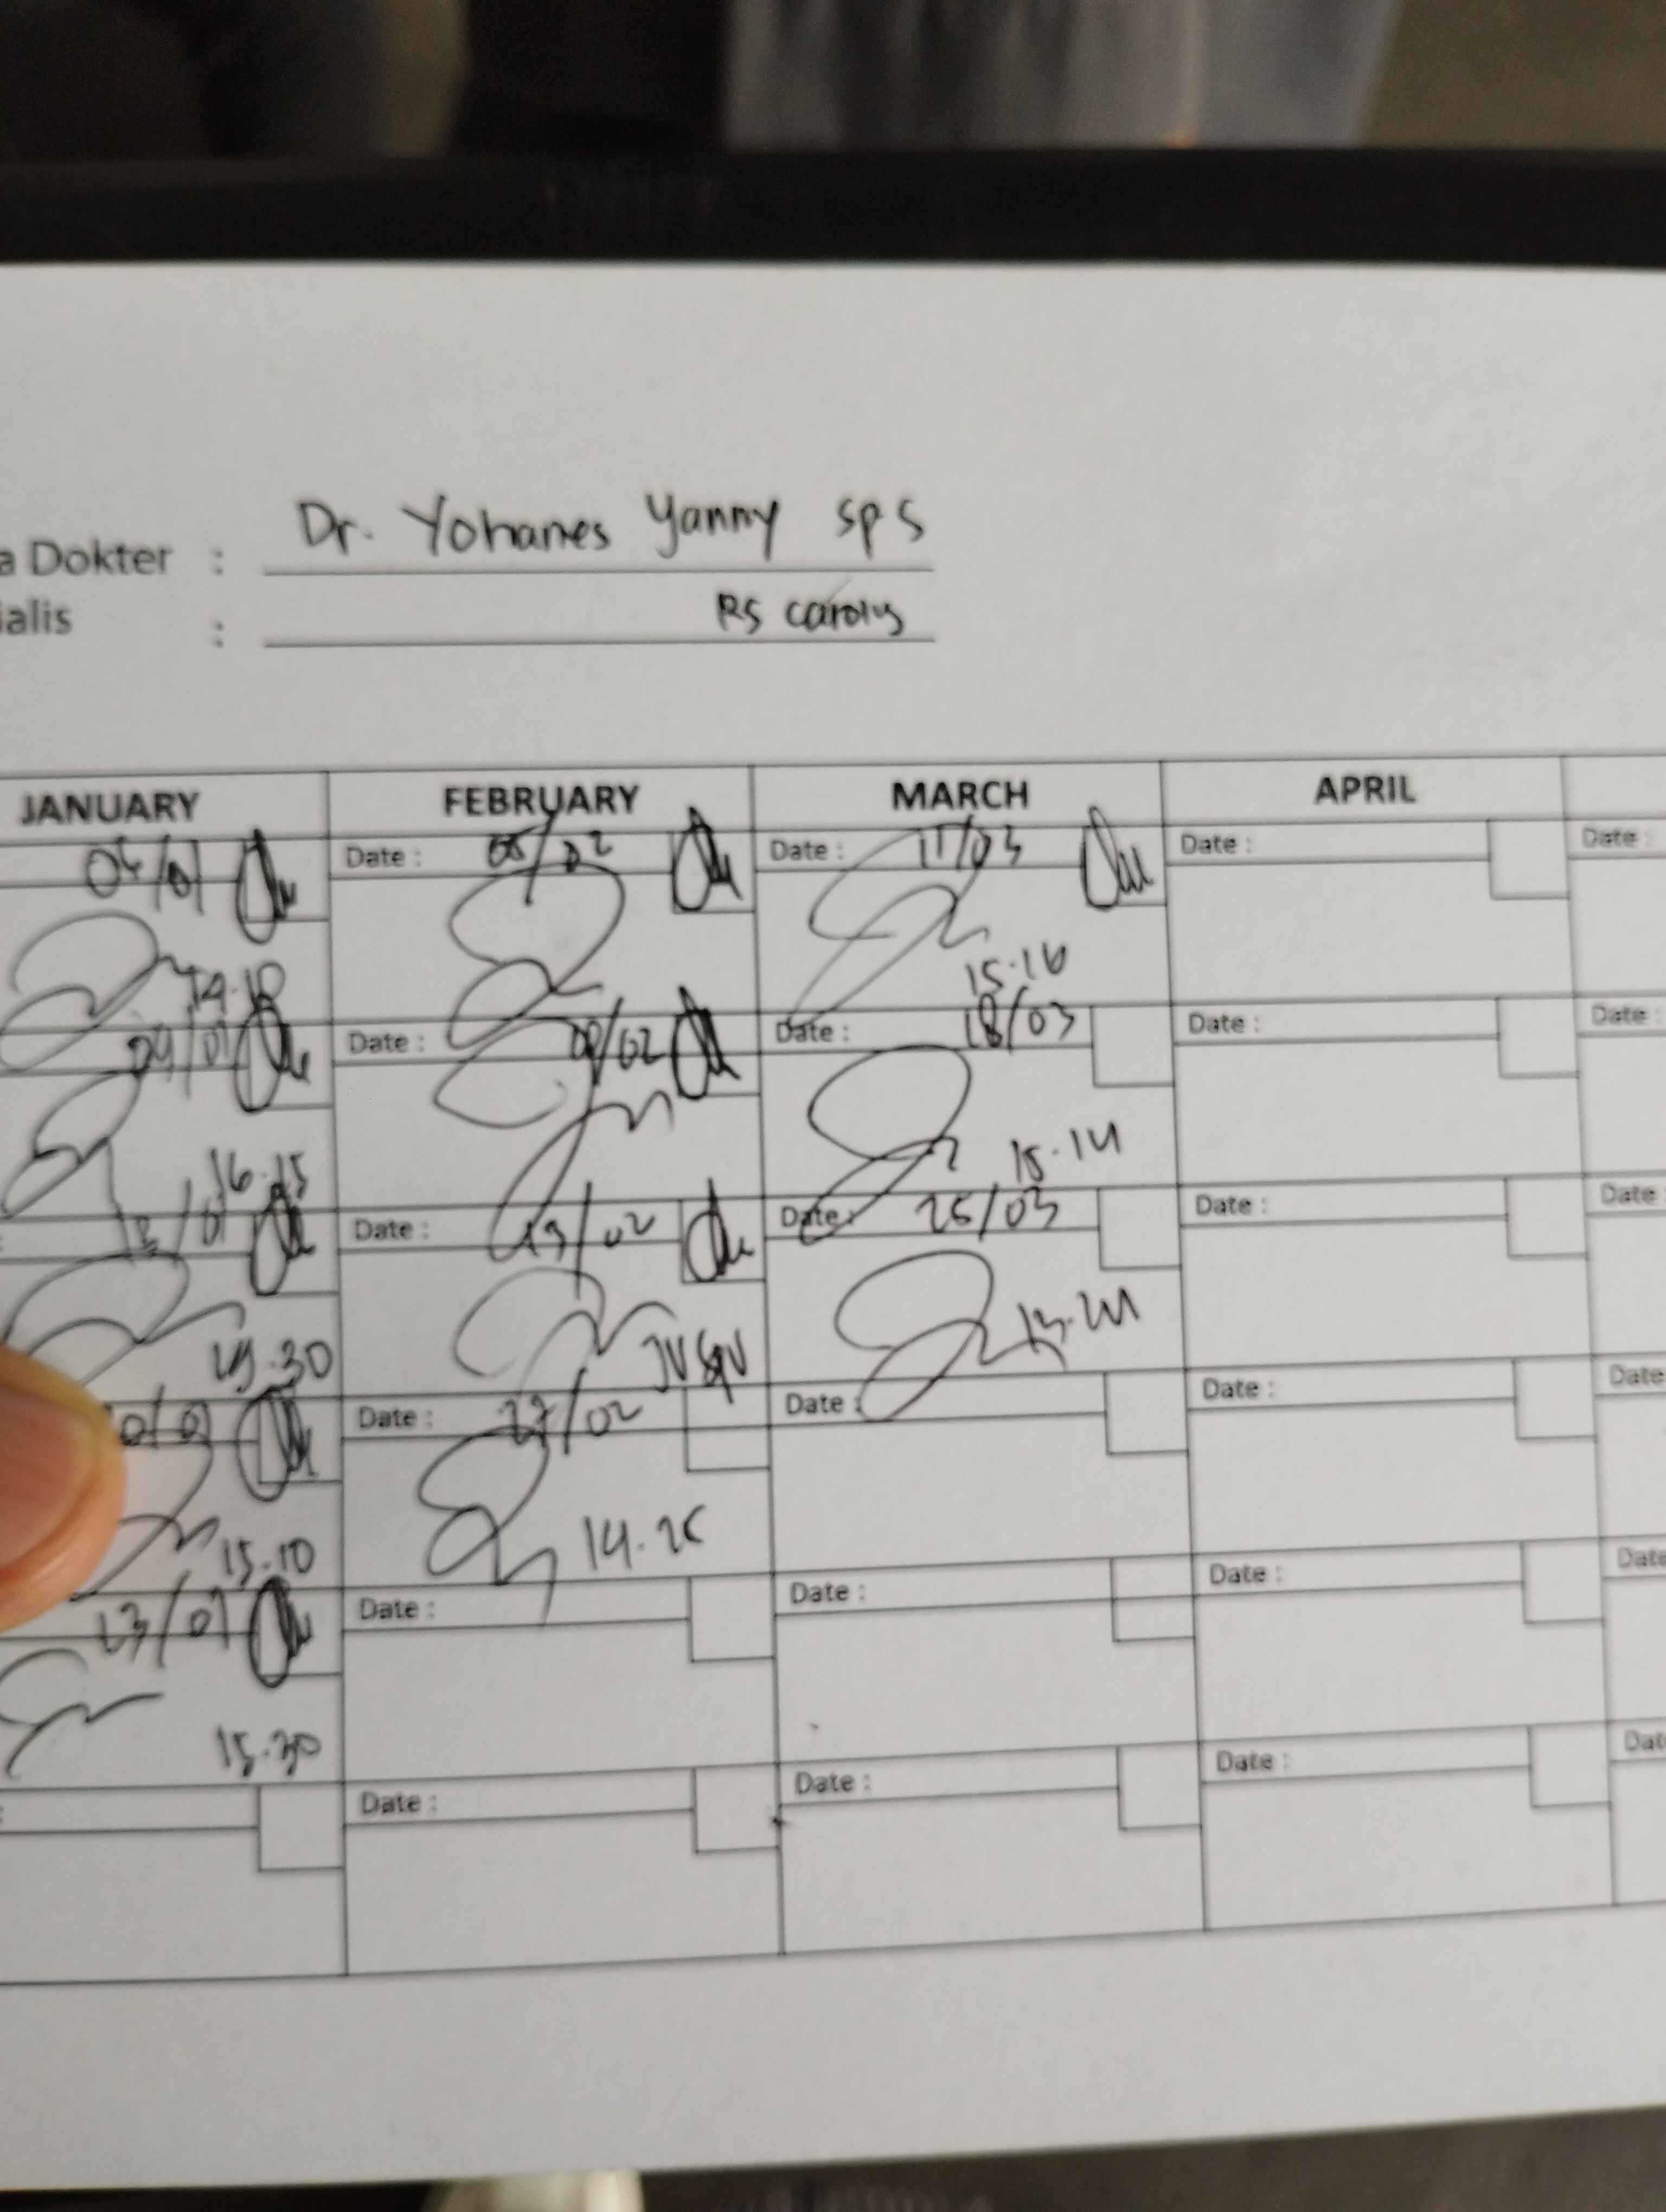 Dr. Yohanes Yanny SpS
a Dokter :
RS Carolus
ialis :
JANUARY FEBRUARY MARCH APRIL
04/01 Date : 05/02 Date : 11/03 Date : Date :
14.10 15.16
09/01 Date : 09/02 Date : 18/03 Date : Date :
16.15 15.14
13/01 Date : 13/02 Date : 25/03 Date : Date
15.30
Date : 27/02 Date : Date : Date
15.10 14.25
23/01 Date : Date : Date : Date
15.30
: Date : Date : Date : Dat